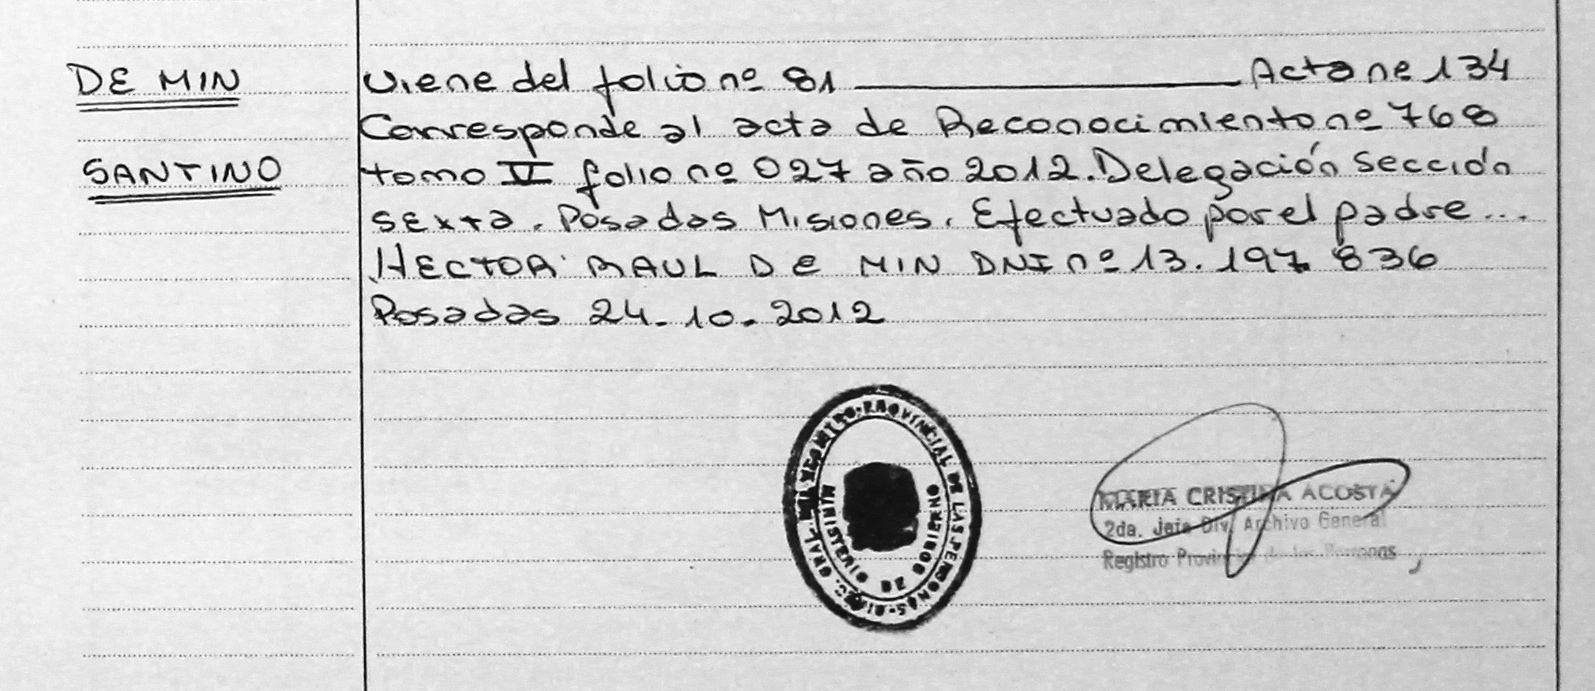 DE MIN
SANTINO
Viene del folio nº 81 ________ Acta nº 134
Corresponde al acta de Reconocimiento nº 768
tomo IV folio nº 027 año 2012. Delegación Sección
sexta. Posadas Misiones. Efectuado por el padre...
HECTOR RAUL DE MIN DNI nº 13.197.836
Posadas 24.10.2012
REGISTRO PROVINCIAL DE LAS PERSONAS-DIREC. GRAL.
MINISTERIO DE GOBIERNO
MARIA CRISTINA ACOSTA
2da. Jefe Div. Archivo General
Registro Provincial de las Personas